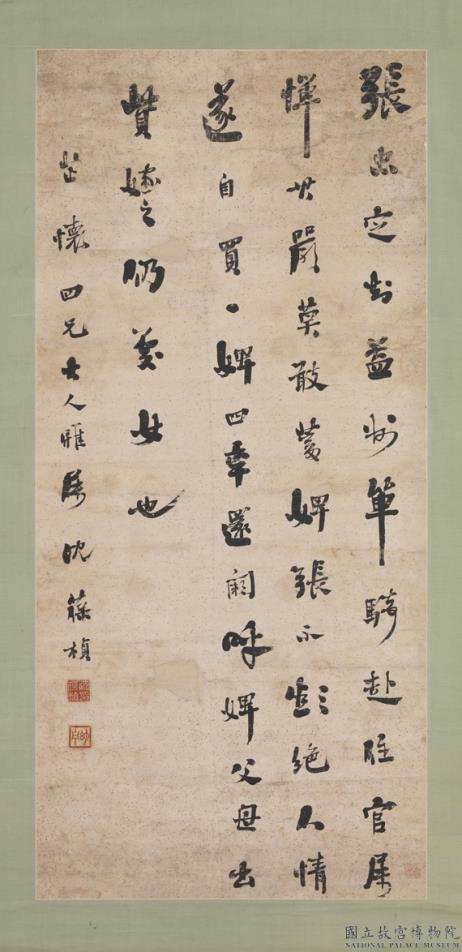 張忠定知益州單騎赴任官屬
憚其嚴莫敢蓄婢張不欲絕人情
遂自買一婢四年還闕呼婢父母出
貲嫁之仍處女也
懷四兄大人雅屬沈葆楨
國立故宮博物院
NATIONAL PALACE MUSEUM